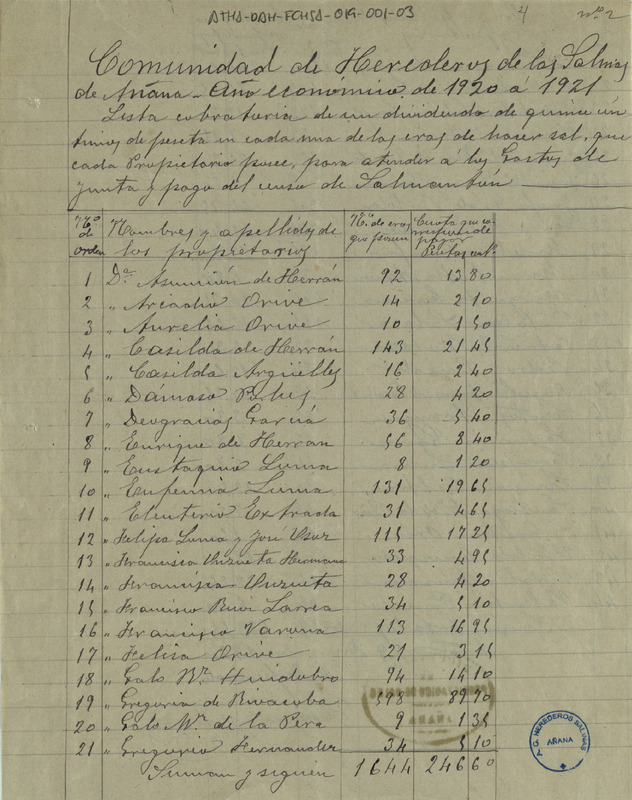 ATHA-DAH-FCHSA-019-001-03
4
nº 2
Comunidad de Herederos de las Salinas
de Añana - Año económico de 1920 á 1921
Lista cobratoria de un dividendo de quince cén
timos de peseta en cada una de las eras de hacer sal, que
cada Propietario posee, para atender á los Gastos de
Junta y pago del censo de Salvantón
Nº de orden Nombres y apellidos de los propietarios Nº de eras que poseen Cuota que corresponde pagar Pesetas cent.
1 Dª Asunción de Herrán 92 13 80
2 " Arcadio Orive 14 2 10
3 " Aurelia Orive 10 1 50
4 " Casilda de Herrán 143 21 45
5 " Casilda Argüelles 16 2 40
6 " Dámaso 28 4 20
7 " Deogracias García 36 5 40
8 " Enrique de Herran 56 8 40
9 " Eustaquio Luma 8 1 20
10 " Eufemia Luma 131 19 65
11 " Eleuterio Extrada 31 4 65
12 " Felipa Luma y José 115 17 25
13 " Francisca Unzueta Hermano 33 4 95
14 " Francisca Unzueta 28 4 20
15 " Francisco Ruiz Larrea 34 5 10
16 " Francisco Varona 113 16 95
17 " Felisa Orive 21 3 15
18 " Galo Mª Huidobro 94 14 10
19 " Gregoria de Rivacoba 598 89 70
20 " Galo Mª de la Pera 9 1 35
21 " Gregorio Hernandez 34 5 10
Suman y siguen 1644 246 60
AÑANA
A.G. HEREDEROS SALINAS
AÑANA